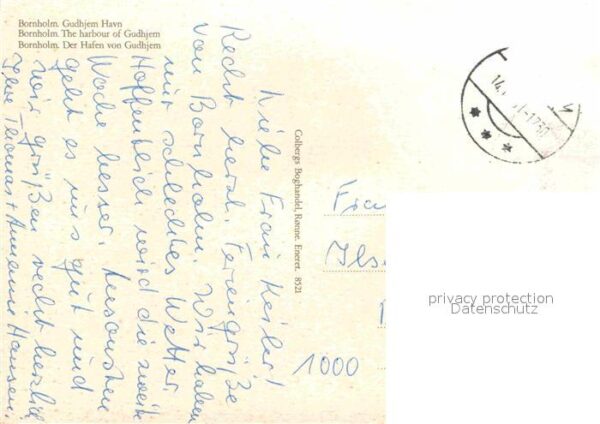 Bornholm. Gudhjem Havn
Bornholm. The harbour of Gudhjem
Bornholm. Der Hafen von Gudhjem
Liebe Frau Keiler!
Recht herzl. Feriengrüße
von Bornholm. Wir haben
nur schlechtes Wetter.
Hoffentlich wird die zweite
Woche besser. Ansonsten
geht es uns gut und
wir grüßen recht herzlich
Ihre Thomas + Annemie Hansen.
Colbergs Boghandel, Rønne. Eneret. 8521
14.
-1730
Frau
Ilse
1000
privacy protection
Datenschutz